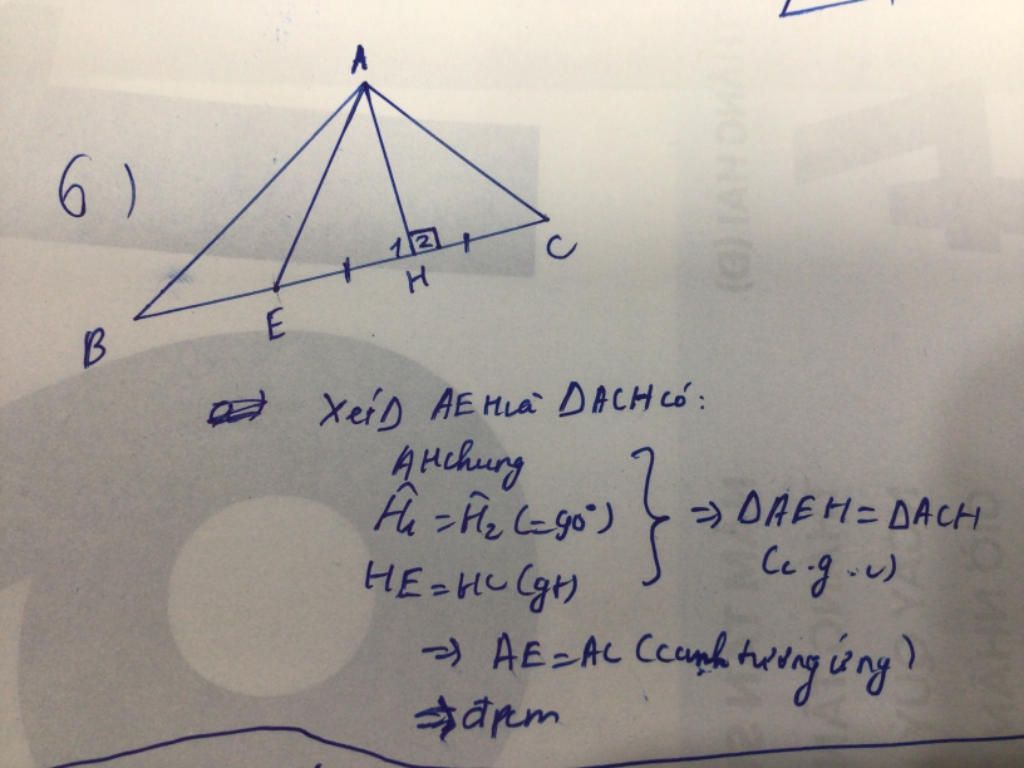 A
6)
1 2
H
C
E
B
Xét Δ AEH và ΔACH có:
AH chung
Ĥ₁ = Ĥ₂ (=90°)
HE = HC (gt)
} ⇒ ΔAEH = ΔACH
(c.g.c)
⇒ AE = AC (cạnh tương ứng)
⇒ đpcm